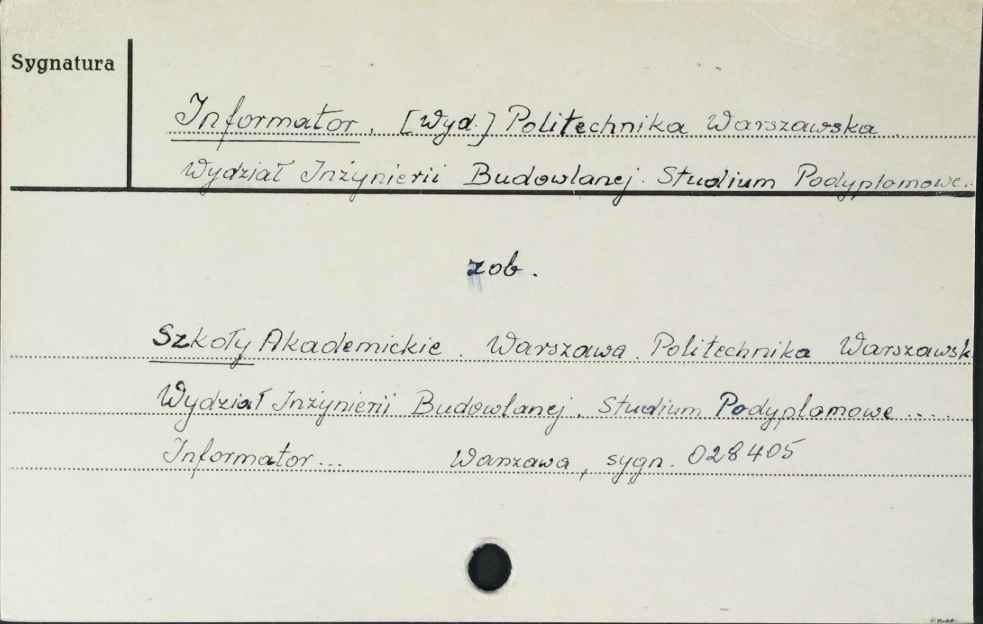 Sygnatura
Informator. [Wyd.] Politechnika Warszawska.
Wydział Inżynierii Budowlanej. Studium Podyplomowe..
zob.
Szkoły Akademickie. Warszawa. Politechnika Warszawsk
Wydział Inżynierii Budowlanej. Studium Podyplomowe ....
Informator... Warszawa, sygn. 028405